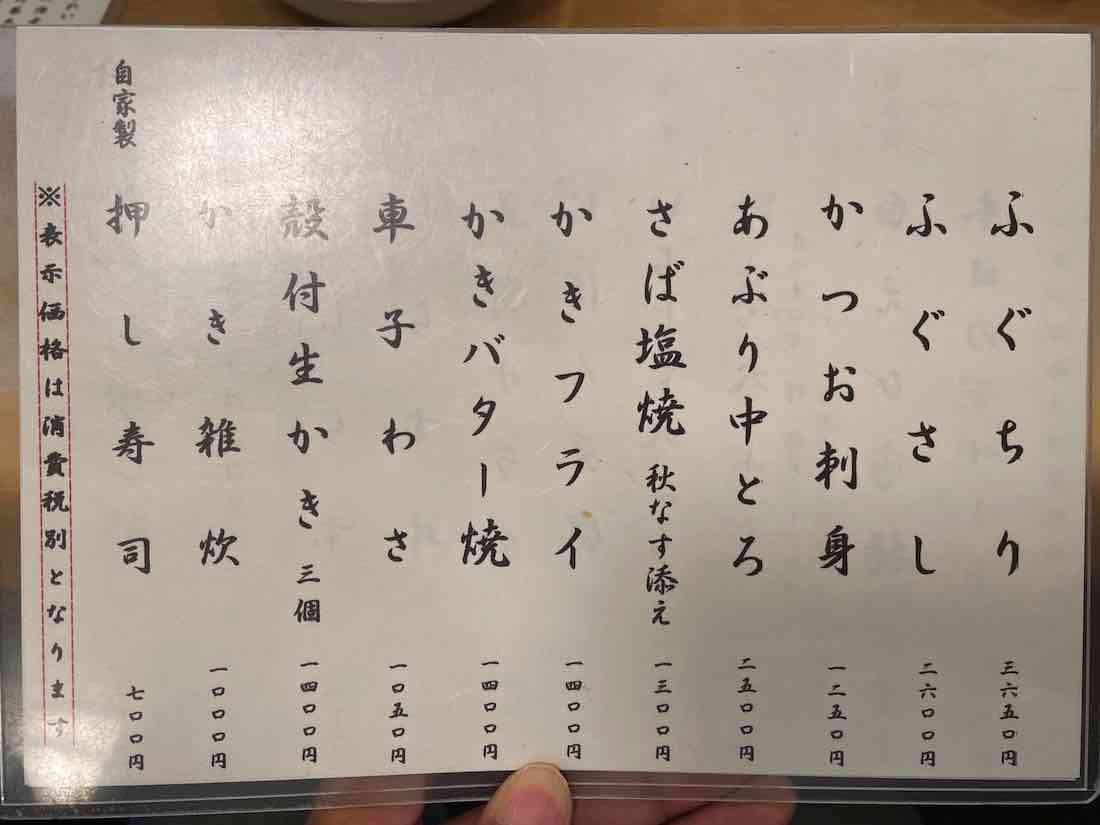 ふぐちり 三六五〇円
ふぐさし 二六〇〇円
かつお刺身 一二五〇円
あぶり中とろ 二五〇〇円
さば塩焼 秋なす添え 一三〇〇円
かきフライ 一四〇〇円
かきバター焼 一四〇〇円
車子わさ 一〇五〇円
殻付生かき 三個 一四〇〇円
かき雑炊 一〇〇〇円
自家製 押し寿司 七〇〇円
※表示価格は消費税別となります